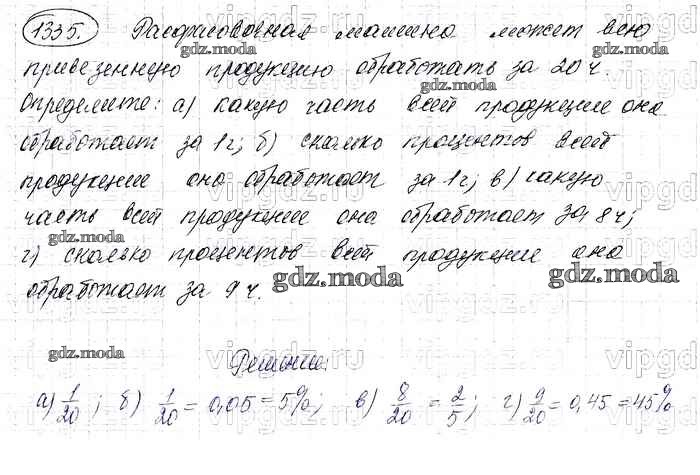 1335. Расфасовочная машина может всю
привезенную продукцию обработать за 20 ч.
Определите: а) какую часть всей продукции она
обработает за 1ч; б) сколько процентов всей
продукции она обработает за 1ч; в) какую
часть всей продукции она обработает за 8ч;
г) сколько процентов всей продукции она
обработает за 9ч.
Решение:
а) 1/20 ; б) 1/20 = 0,05 = 5%; в) 8/20 = 2/5; г) 9/20 = 0,45 = 45%
gdz.moda
gdz.moda
gdz.moda
gdz.moda
gdz.moda
gdz.moda